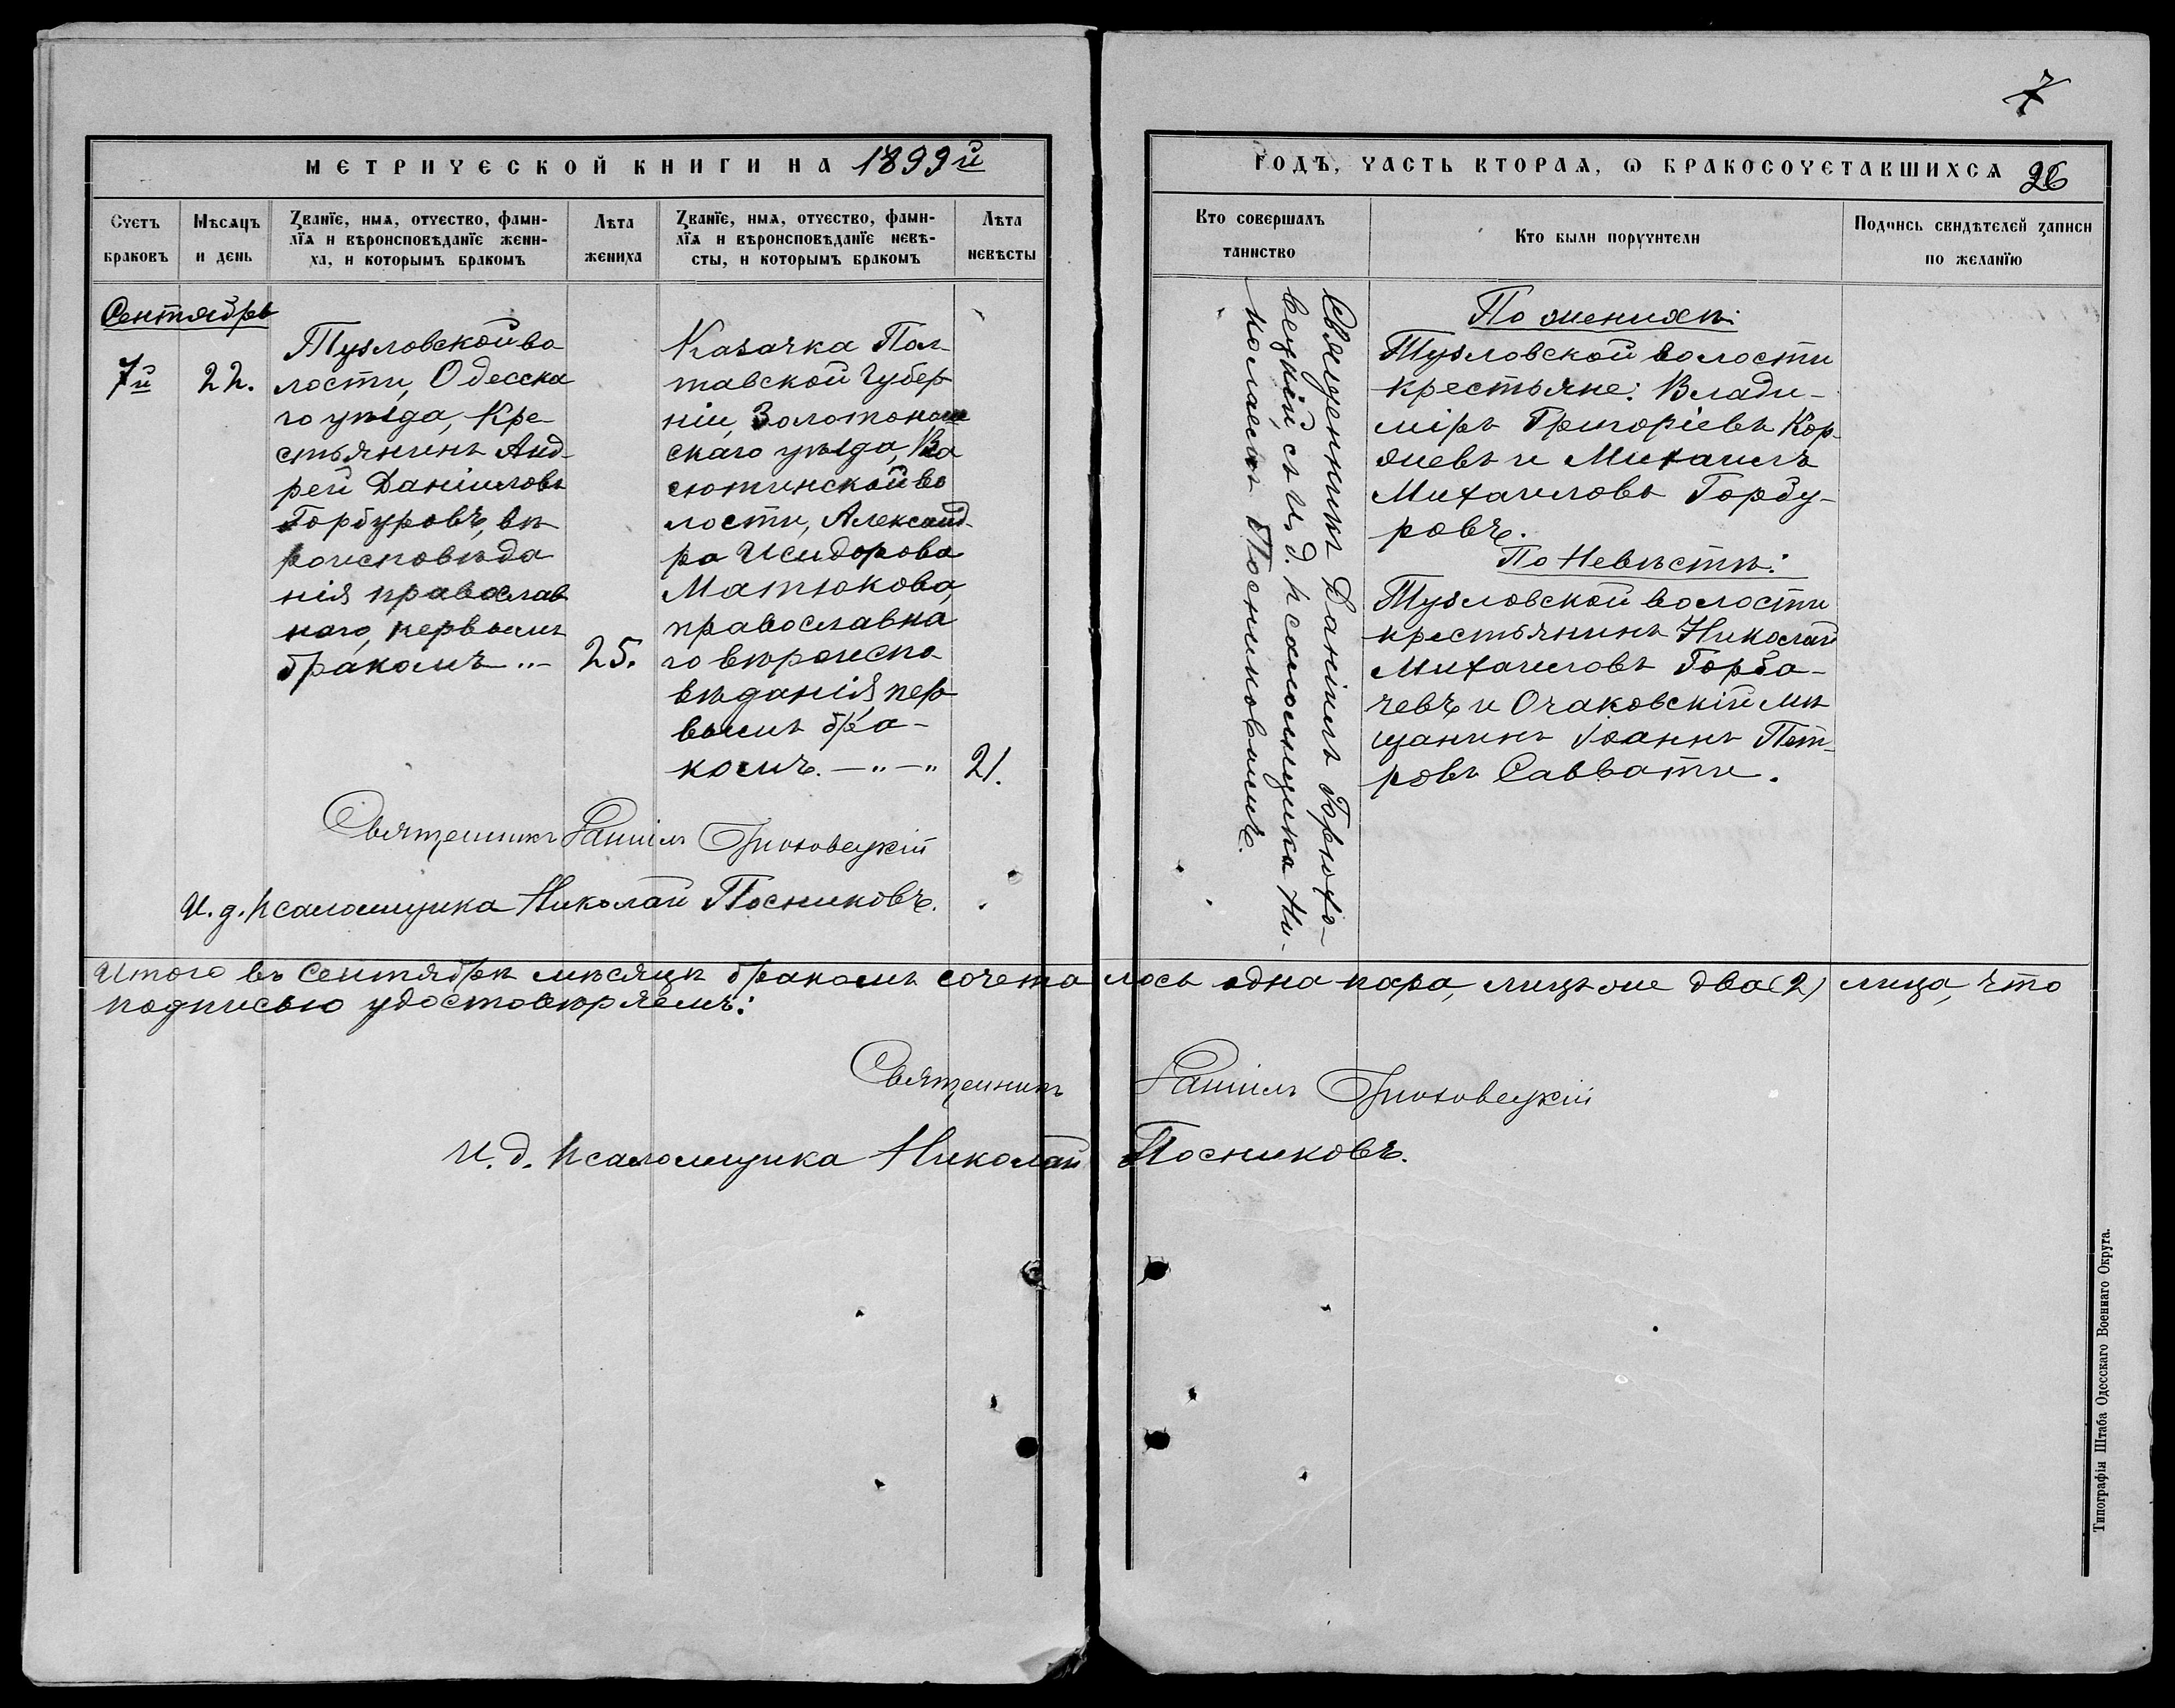 7
МЕТРИЧЕСКОЙ КНИГИ НА 1899й
ГОДЪ, ЧАСТЬ ВТОРАѦ, Ѡ БРАКОСОЧЕТАВШИХСѦ 26
Счетъ браковъ
Мѣсѧцъ и день
Званїе, имѧ, отчество, фами-
лїѧ и вѣроисповѣданїе жени-
ха, и которымъ бракомъ
Лѣта жениха
Званїе, имѧ, отчество, фами-
лїѧ и вѣроисповѣданїе невѣ-
сты, и которымъ бракомъ
Лѣта невѣсты
Кто совершалъ таинство
Кто были поручители
Подпись свидѣтелей записи
по желанїю
Сентябрь
7й
22.
Тузловской во
лости, Одесска
го уѣзда, Кре-
стьянинъ Анд-
рей Даніиловъ
Горбуровъ, вѣ-
роисповѣда
нія православ
наго, первымъ
бракомъ
25.
Казачка Пол-
тавской губер-
ніи, Золотонош
скаго уѣзда, Ва
сютинской во
лости, Александ-
ра Исидорова
Матюкова,
православна
го вѣроиспо-
вѣданія, пер-
вымъ бра-
комъ.
21.
Священникъ Даніилъ Грюхо-
вецкій, съ И. д. псаломщика Ни-
колаемъ Посниковымъ.
По женихѣ:
Тузловской волости
крестьяне: Влади-
міръ Григоріевъ Кор-
жевъ и Михаилъ
Михаиловъ Горбу-
ровъ.
По Невѣстѣ:
Тузловской волости
крестьянинъ Николай
Михаиловъ Горба-
чевъ и Очаковскій мѣ
щанинъ Іоаннъ Пет-
ровъ Саввати.
Священникъ Даніилъ Грюховецкій
И. д. псаломщика Николай Посниковъ.
Итого въ Сентябрѣ мѣсяцѣ бракомъ сочеталось одна пара, лицъ же два (2) лица, что
подписью удостовѣряемъ:
Священникъ Даніилъ Грюховецкій
И. д. псаломщика Николай Посниковъ.
Типографія Штаба Одесскаго Военнаго Округа.